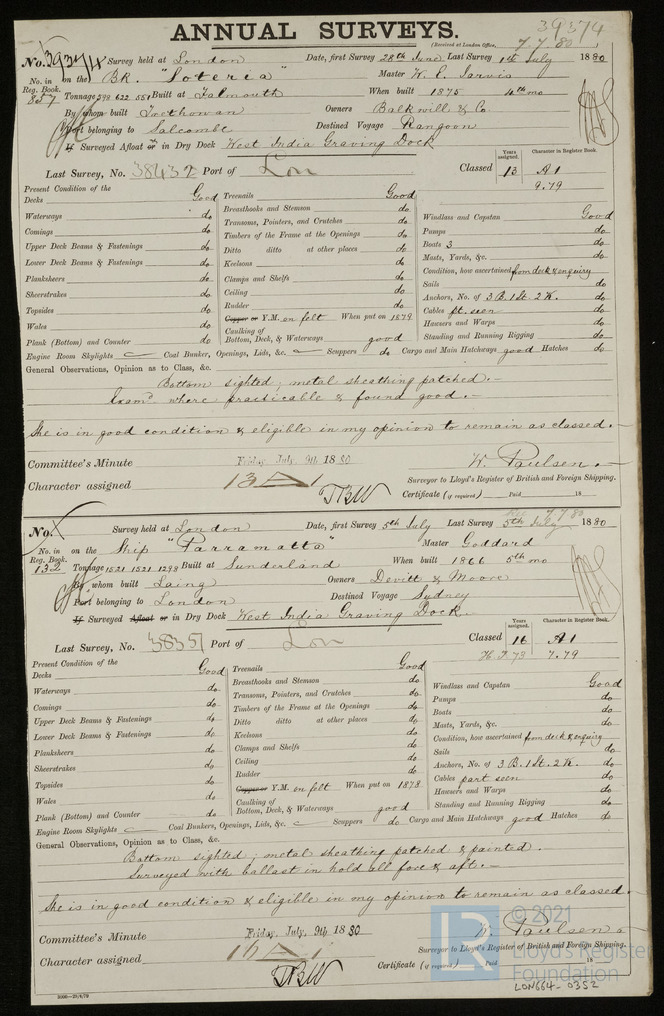 ANNUAL SURVEYS.
39374
(Received at London Office, 7.7.80
No. 39374 Survey held at London Date, first Survey 28th June Last Survey 1st July 1880
No. in Reg. Book. 857 on the Bk. "Soteria" Master W. E. Jarvis
Tonnage 598 622 551 Built at Falmouth When built 1875 4th mo
By whom built Trethowan Owners Balkwill & Co.
Port belonging to Salcombe Destined Voyage Rangoon
If Surveyed Afloat or in Dry Dock West India Graving Dock
Years assigned. Character in Register Book.
Last Survey, No. 38432 Port of Lon Classed 13 A1
9.79
Present Condition of the
Decks Good Treenails Good
Waterways do Breasthooks and Stemson do Windlass and Capstan Good
Comings do Transoms, Pointers, and Crutches do Pumps do
Upper Deck Beams & Fastenings do Timbers of the Frame at the Openings do Boats 3 do
Lower Deck Beams & Fastenings do Ditto ditto at other places do Masts, Yards, &c. do
Planksheers do Keelsons do Condition, how ascertained from deck & enquiry
Sheerstrakes do Clamps and Shelfs do Sails do
Topsides do Ceiling do Anchors, No. of 3 B. 1 St. 2 K. do
Wales do Rudder do Cables pt. seen do
Plank (Bottom) and Counter do Copper or Y.M. on felt When put on 1879 Hawsers and Warps do
Caulking of Bottom, Deck, & Waterways good Standing and Running Rigging do
Engine Room Skylights Coal Bunker, Openings, Lids, &c. Scuppers do Cargo and Main Hatchways good Hatches do
General Observations, Opinion as to Class, &c.
Bottom sighted; metal sheathing patched.-
Examd. where practicable & found good.-
She is in good condition & eligible in my opinion to remain as classed.-
Committee's Minute Friday, July, 9th 1880 W. Paulsen.
Character assigned 13 A 1 Surveyor to Lloyd's Register of British and Foreign Shipping.
Certificate (if required) Paid 18
7.7.80
No. Survey held at London Date, first Survey 5th July Last Survey 5th July 1880
No. in Reg. Book. 132 on the Ship "Parramatta" Master Goddard
Tonnage 1521 1521 1298 Built at Sunderland When built 1866 5th mo
By whom built Laing Owners Devitt & Moore
Port belonging to London Destined Voyage Sydney
If Surveyed Afloat or in Dry Dock West India Graving Dock.
Years assigned. Character in Register Book.
Last Survey, No. 38351 Port of Lon Classed 16 A1
H.T. 73 7.79
Present Condition of the
Decks Good Treenails Good
Waterways do Breasthooks and Stemson do Windlass and Capstan Good
Comings do Transoms, Pointers, and Crutches do Pumps do
Upper Deck Beams & Fastenings do Timbers of the Frame at the Openings do Boats do
Lower Deck Beams & Fastenings do Ditto ditto at other places do Masts, Yards, &c. do
Planksheers do Keelsons do Condition, how ascertained from deck & enquiry
Sheerstrakes do Clamps and Shelfs do Sails do
Topsides do Ceiling do Anchors, No. of 3 B. 1 St. 2 K. do
Wales do Rudder do Cables part seen do
Plank (Bottom) and Counter do Copper or Y.M. on felt When put on 1878 Hawsers and Warps do
Caulking of Bottom, Deck, & Waterways good Standing and Running Rigging do
Engine Room Skylights Coal Bunkers, Openings, Lids, &c. Scuppers do Cargo and Main Hatchways good Hatches do
General Observations, Opinion as to Class, &c.
Bottom sighted; metal sheathing patched & painted.
Surveyed with ballast in hold all fore & aft.-
She is in good condition & eligible in my opinion to remain as classed.
Committee's Minute Friday, July, 9th 1880 W. Paulsen
Character assigned 16 A 1 Surveyor to Lloyd's Register of British and Foreign Shipping.
Certificate (if required) Paid 18
LR © 2021 Lloyd's Register Foundation
LON664-0352